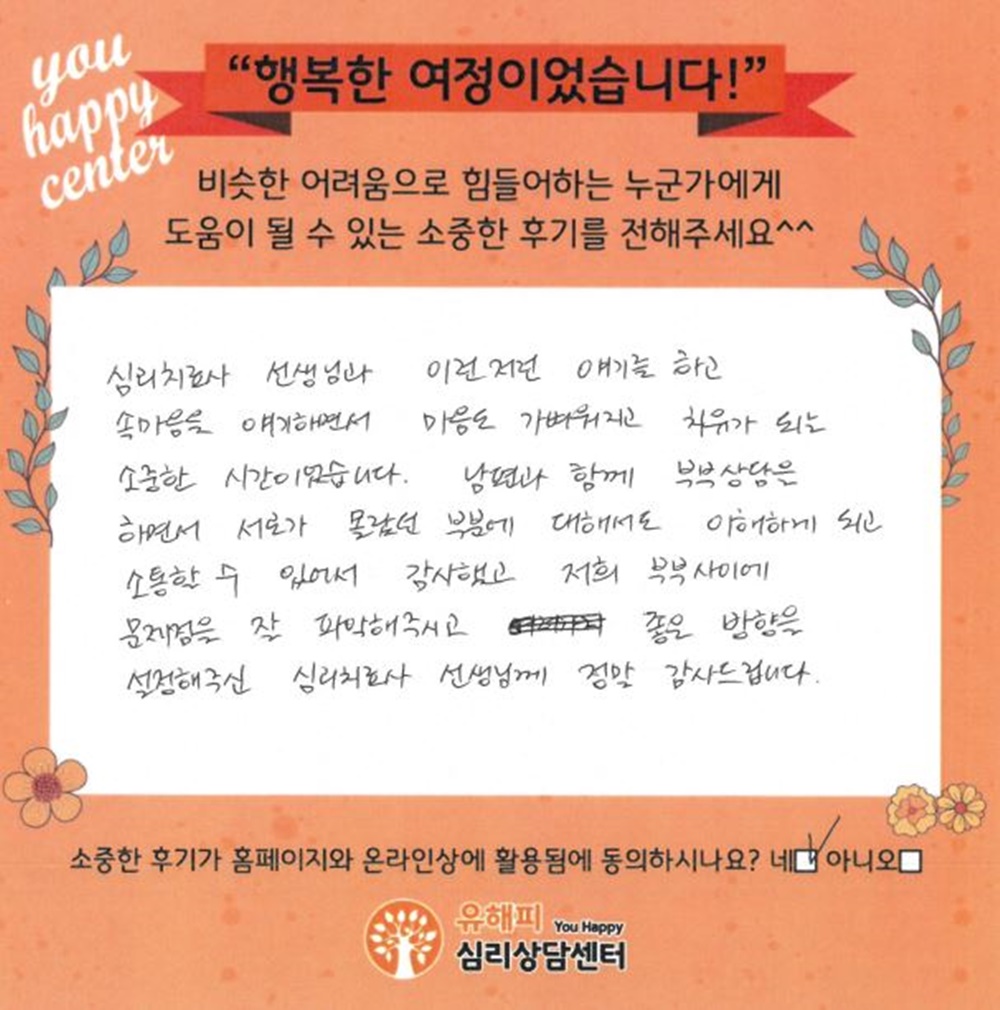 you
happy
center
“행복한 여정이었습니다!”
비슷한 어려움으로 힘들어하는 누군가에게
도움이 될 수 있는 소중한 후기를 전해주세요^^
심리치료사 선생님과 이런저런 얘기를 하고
속마음을 얘기하면서 마음도 가벼워지고 치유가 되는
소중한 시간이었습니다. 남편과 함께 부부상담을
하면서 서로가 몰랐던 부분에 대해서도 이해하게 되고
소통할 수 있어서 감사했고 저희 부부사이에
문제점을 잘 파악해주시고 좋은 방향을
설정해주신 심리치료사 선생님께 정말 감사드립니다.
소중한 후기가 홈페이지와 온라인상에 활용됨에 동의하시나요? 네 아니오
유해피 You Happy
심리상담센터